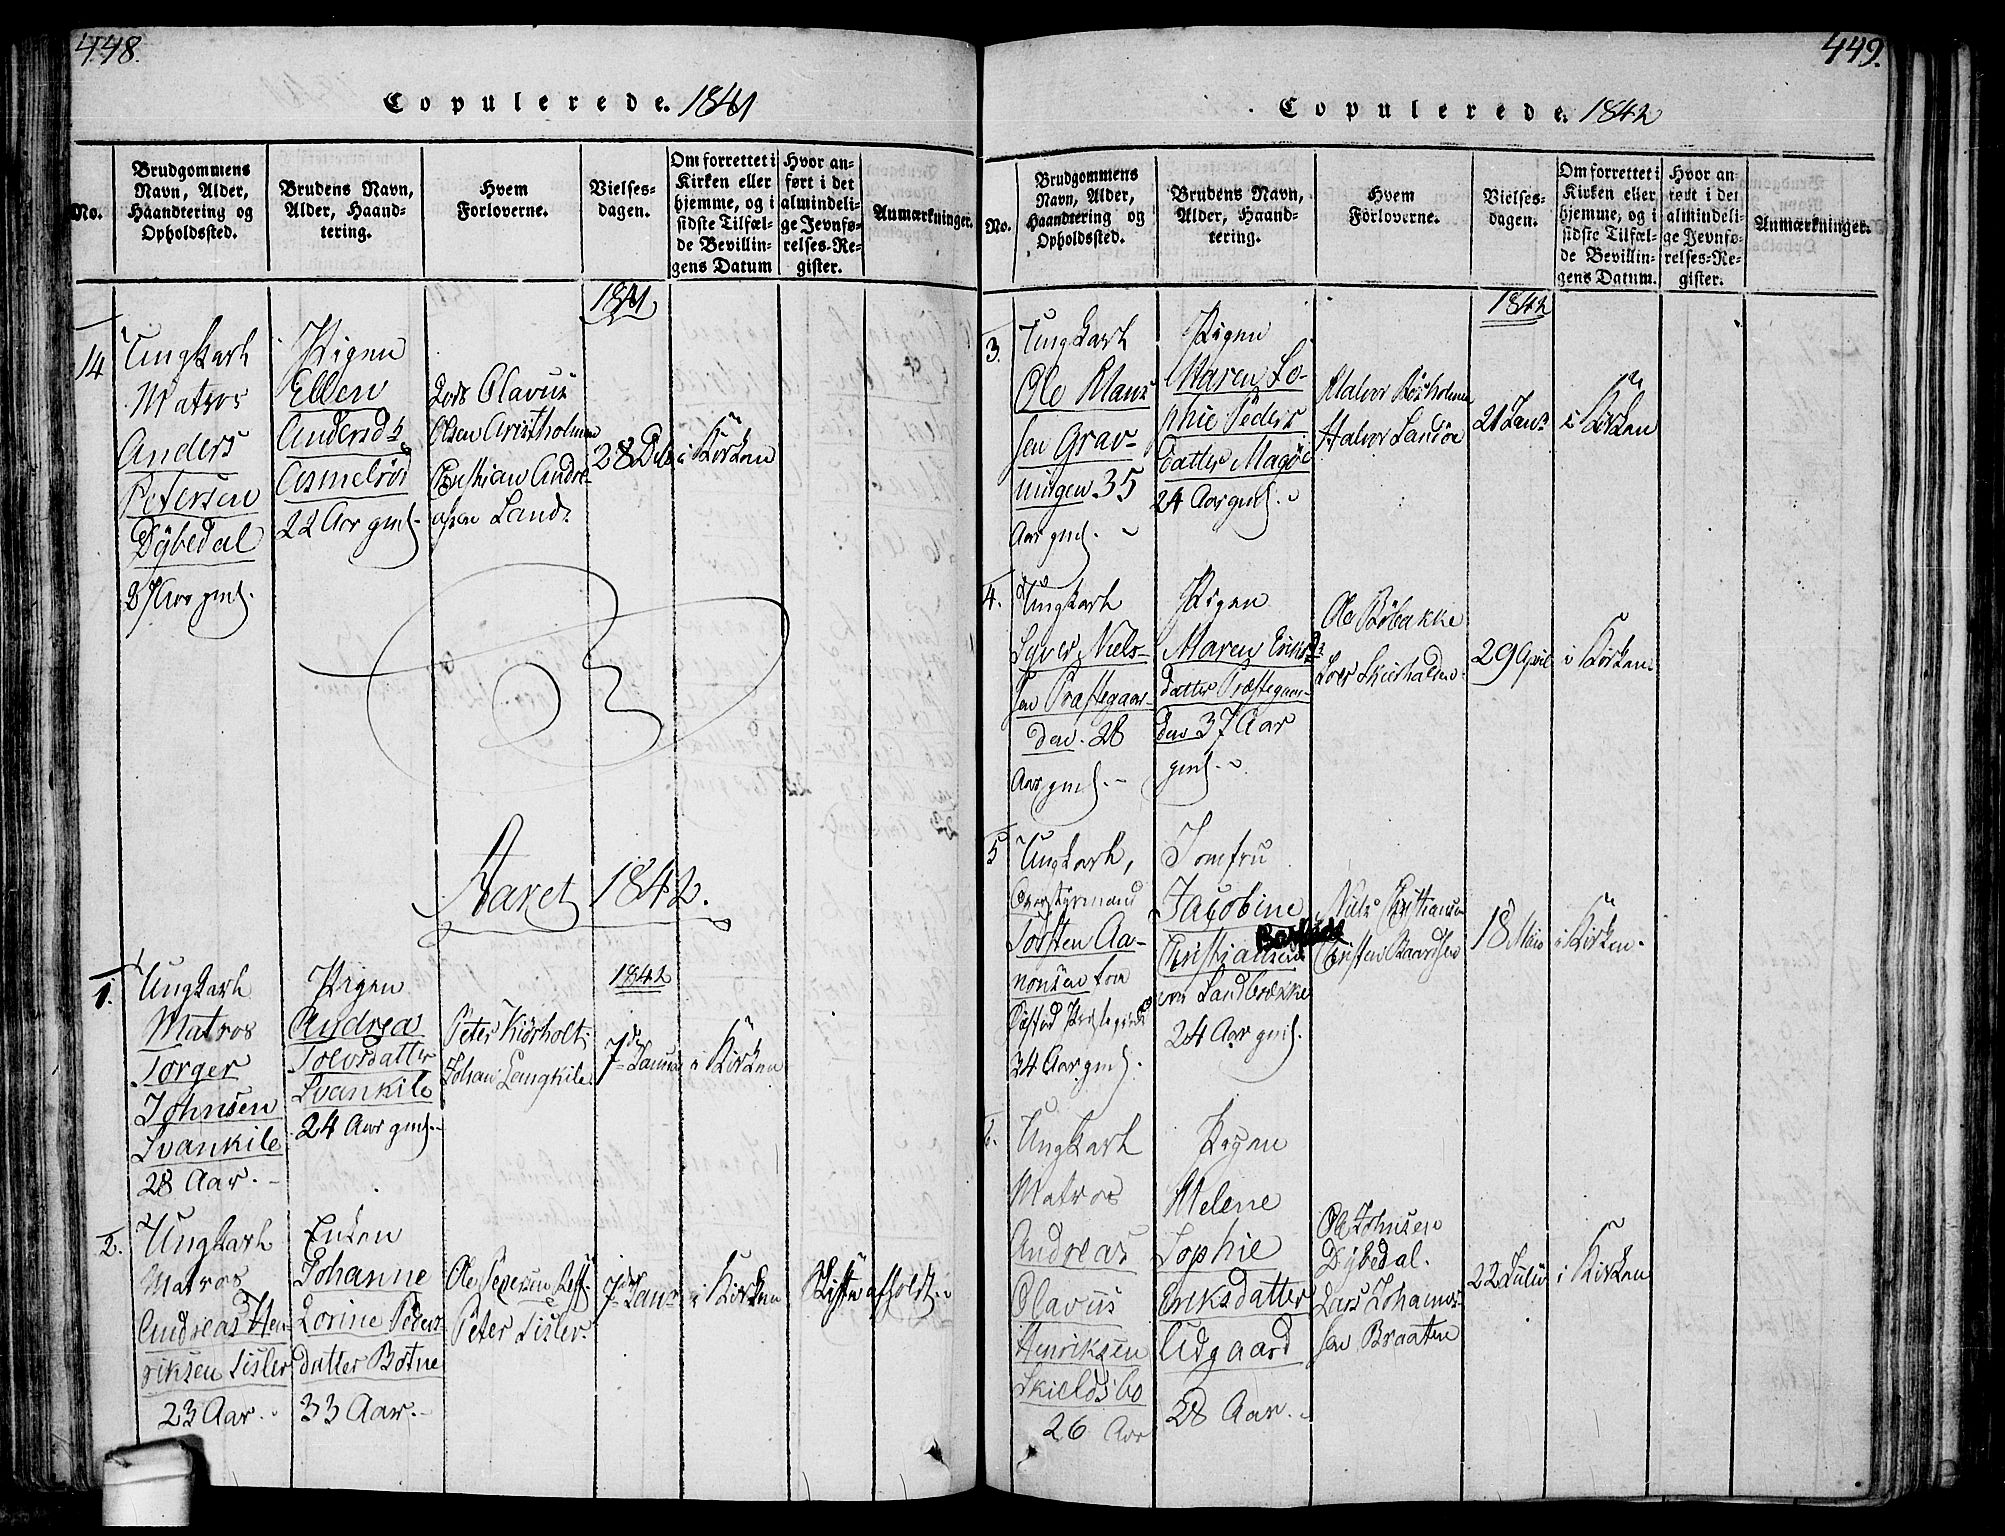 448.
Copulerede. 1841
No.
Brudgommens
Navn, Alder,
Haandtering og
Opholdssted.
Brudens Navn,
Alder, Haand-
tering.
Hvem
Forloverne.
Vielses-
dagen.
Om forrettet i
Kirken eller
hjemme, og i
sidste Tilfæl-
de Bevillin-
gens Datum
Hvor an-
ført i det
almindeli-
ge Jevnfø-
relses-Re-
gister.
Anmærkninger.
1841
14
Ungkarl
Matros
Anders
Petersen
Dybedal
27 Aar gml.
Pigen
Ellen
Andersd
Asmelrød
22 Aar gml.
Lods Olavus
Olsen Aristholmen
Christian Andre-
asen Land
28 Dec
i Kirken
Aaret 1842.
1842
1.
Ungkarl
Matros
Torger
Johnsen
Svankile
28 Aar.
Pigen
Andrea
Tolvsdatter
Svankile
24 Aar gml.
Peter Kiørholt
Johan Langkile
7de Januar
i Kirken
2.
Ungkarl
Matros
Andreas Hen-
riksen Sisler
23 Aar.
Enken
Johanne
Lorine Peders
datter Botne
33 Aar.
Ole Severin
Peter Sisler.
7de Jan
i Kirken
Skifte afholdt
449.
Copulerede. 1842
No.
Brudgommens
Navn, Alder,
Haandtering og
Opholdssted.
Brudens Navn,
Alder, Haand-
tering.
Hvem
Forloverne.
Vielses-
dagen.
Om forrettet i
Kirken eller
hjemme, og i
sidste Tilfæl-
de Bevillin-
gens Datum.
Hvor an-
ført i det
almindeli-
ge Jevnfø-
relses-Re-
gister.
Anmærkninger.
1842
3.
Ungkarl
Ole Klaus
sen Grav-
ningen 35
Aar gml.
Pigen
Maren So-
phie Peders
datter Magøe
24 Aar gml.
Halvor Røsholmen
Halvor Sandøe
21 Jan
i Kirken
4.
Ungkarl
Syver Niels-
sen Præstegaar-
den. 28
Aar gml.
Pigen
Maren Eriks
datter Præstegaar-
den 37 Aar
gml.
Ole Bøbakke
Lars Skierhalden
29 April
i Kirken
5
Ungkarl,
Overstyrmand
Torsten Aa-
nonsen fra
Øjestad Præstegield
34 Aar gml.
Jomfru
Jacobine
Christiansen
von Landbrække
24 Aar gml.
Niels Christiansen
Christen Baardsen
18 Maio
i Kirken.
6.
Ungkarl
Matros
Andreas
Olavus
Henriksen
Skieldsbo
26 Aar
Pigen
Helene
Sophie
Eriksdatter
Udgaard
28 Aar.
Ole Johnsen
Dybedal.
Lars Johannes-
sen Braaten
22 Julii
i Kirken